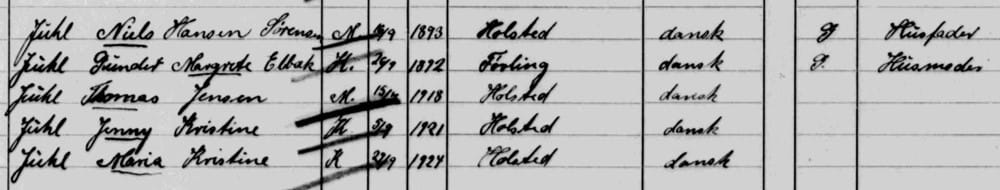 Juhl Niels Hansen Sørensen M. 1893 Holsted dansk G Husfader
Juhl Gunder Margrete Elbæk K. 1892 Føvling dansk G. Husmoder
Juhl Thomas Jensen M. 1918 Holsted dansk
Juhl Jenny Kristine K 1921 Holsted dansk
Juhl Maria Kristine K 27/9 1924 Holsted dansk